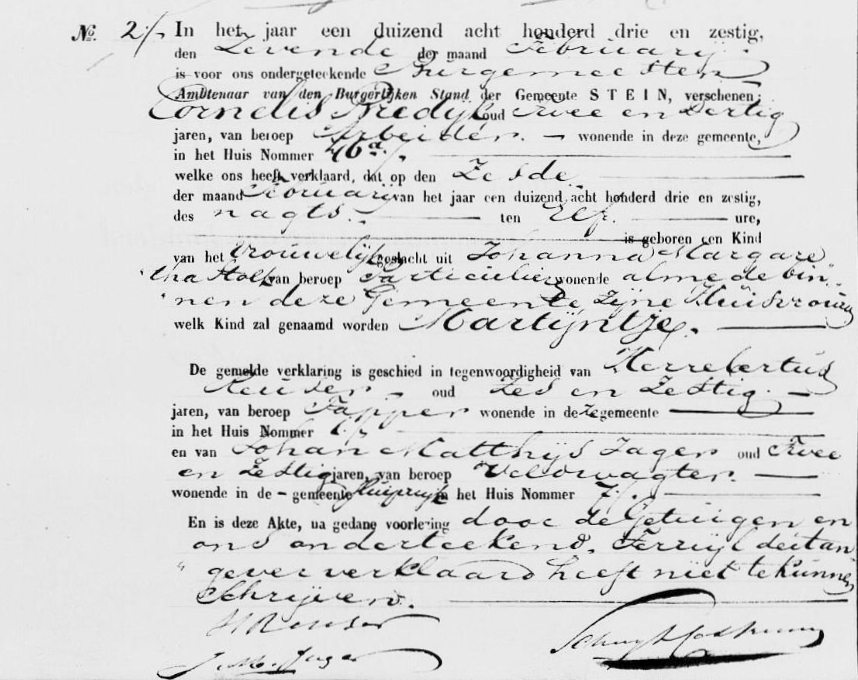 No. 2/.
In het jaar een duizend acht honderd drie en zestig,
den Zevende der maand Februarij
is voor ons ondergeteekende Burgemeester
Ambtenaar van den Burgerlijken Stand der Gemeente STEIN, verschenen:
Cornelis Bredijk oud Twee en Dertig
jaren, van beroep Arbeider. — wonende in deze gemeente,
in het Huis Nommer 46a/.
welke ons heeft verklaard, dat op den Zesde
der maand Februarij van het jaar een duizend acht honderd drie en zestig,
des nagts. ten Elf. ure,
is geboren een Kind
van het vrouwelijk geslacht uit Johanna Margare
tha Stolk van beroep Particuliere wonende almede bin
nen deze Gemeente Zijne Huisvrouw
welk Kind zal genaamd worden Martijntje.
De gemelde verklaring is geschied in tegenwoordigheid van Herrebertus
Reuser oud Zes en Zestig
jaren, van beroep Tapper wonende in deze gemeente
in het Huis Nommer
en van Johan Matthijs Jager oud Twee
en Zestig jaren, van beroep Veldwagter.
wonende in de - gemeente in het Huis Nommer 7/.
En is deze Akte, na gedane voorlezing door de Getuigen en
ons onderteekend. Terwijl de aan
gever verklaard heeft niet te kunnen
Schrijven.
H Reuser
J. M. Jager